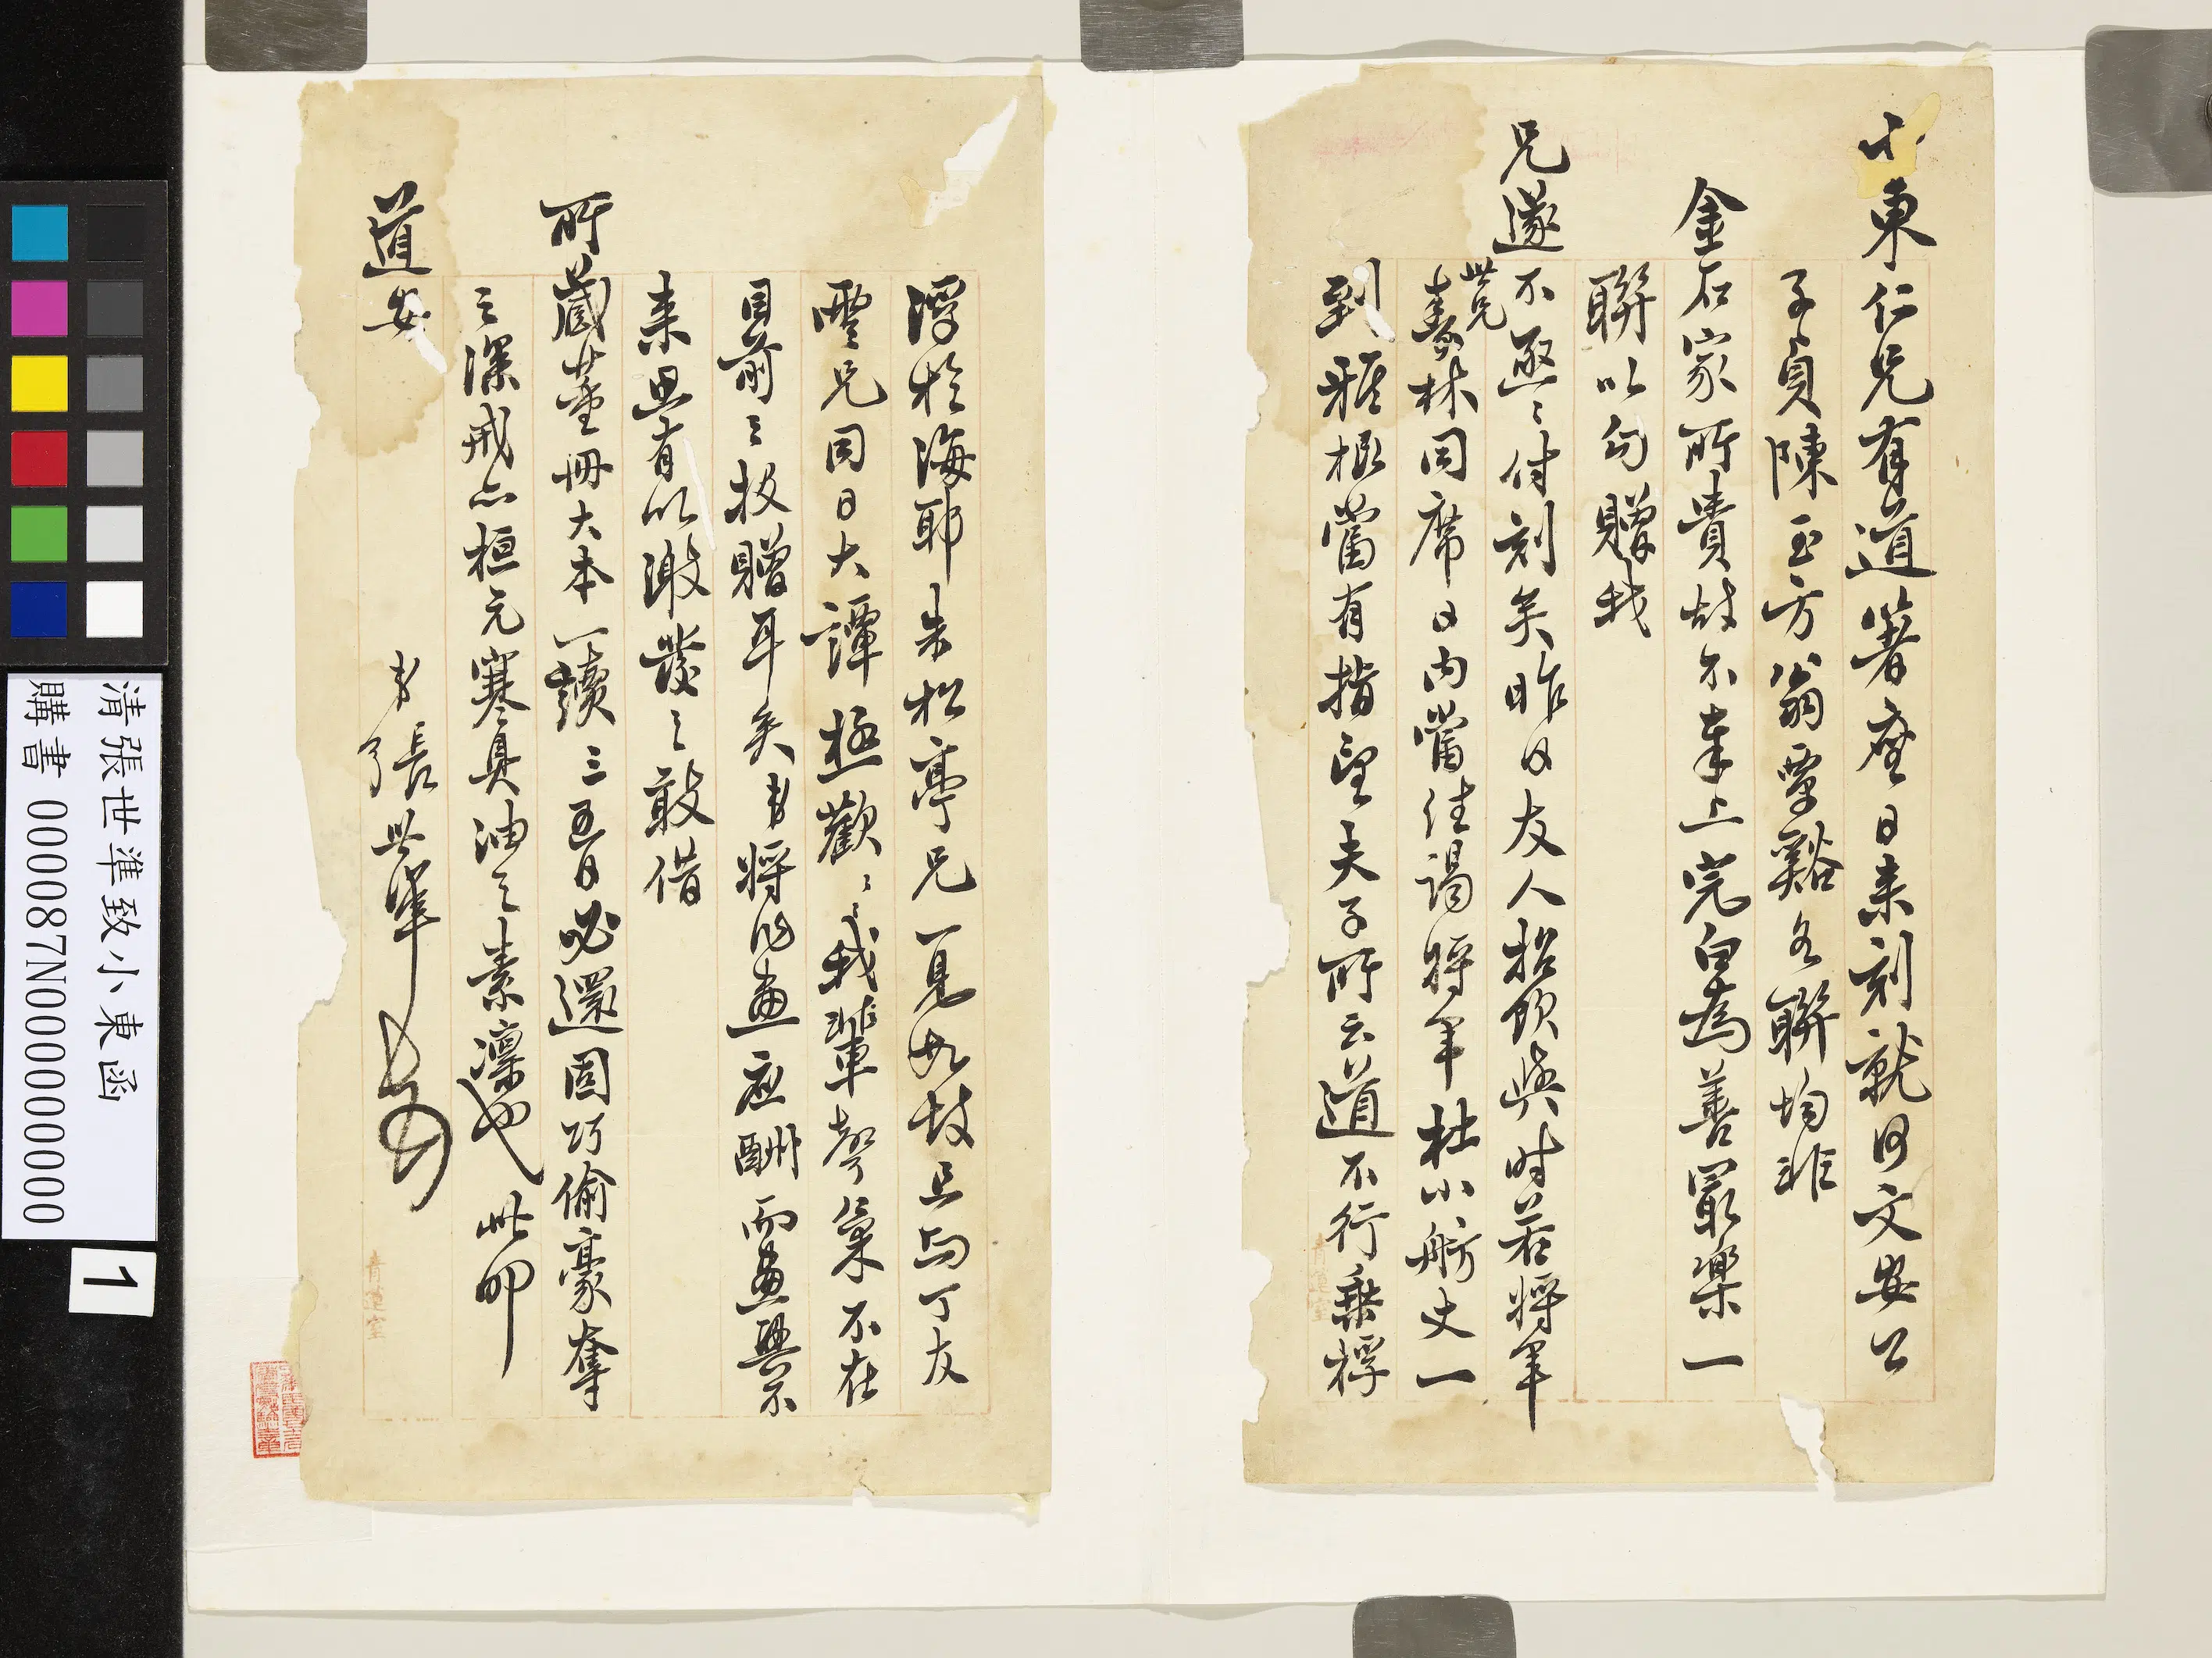 小東仁兄有道著席日來刻就何文安公
子貞陳玉方翁覃谿各聯均非
金石家所貴故不奉上完白為善最樂一
聯以匄贈我
兄遂不亟亟付刻矣昨日友人招飲與時若將軍
樊林世兄同席日內當往謁將軍杜小舫丈一
到雅極當有指望夫子所云道不行乘桴
浮於海耶朱松亭兄一見如故且與丁友
雲兄同日大譚極歡歡我輩聲氣不在
目前之投贈耳矣弟將作畫應酬而畫興不
來思有以激發之敢借
所藏董冊大本一讀三五日必還固巧偷豪奪
之深戒亦桓元寒具油之素凜也此叩
道安
弟張世準
清張世準致小東函
購書 000087N000000000
1